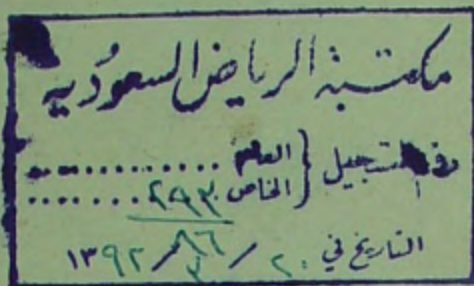 مكتبة الرياض السعودية
رقم التسجيل { العام ..........
الخاص ..........
التاريخ في ٢٠ / / ١٣٩٢